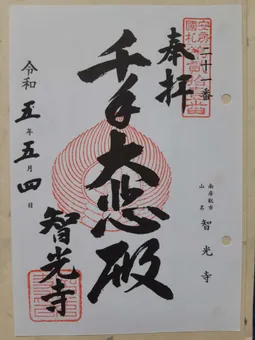 二十一番
奉拝
千手大悲殿
智光寺
令和五年五月四日
南房総市
山名
智光寺